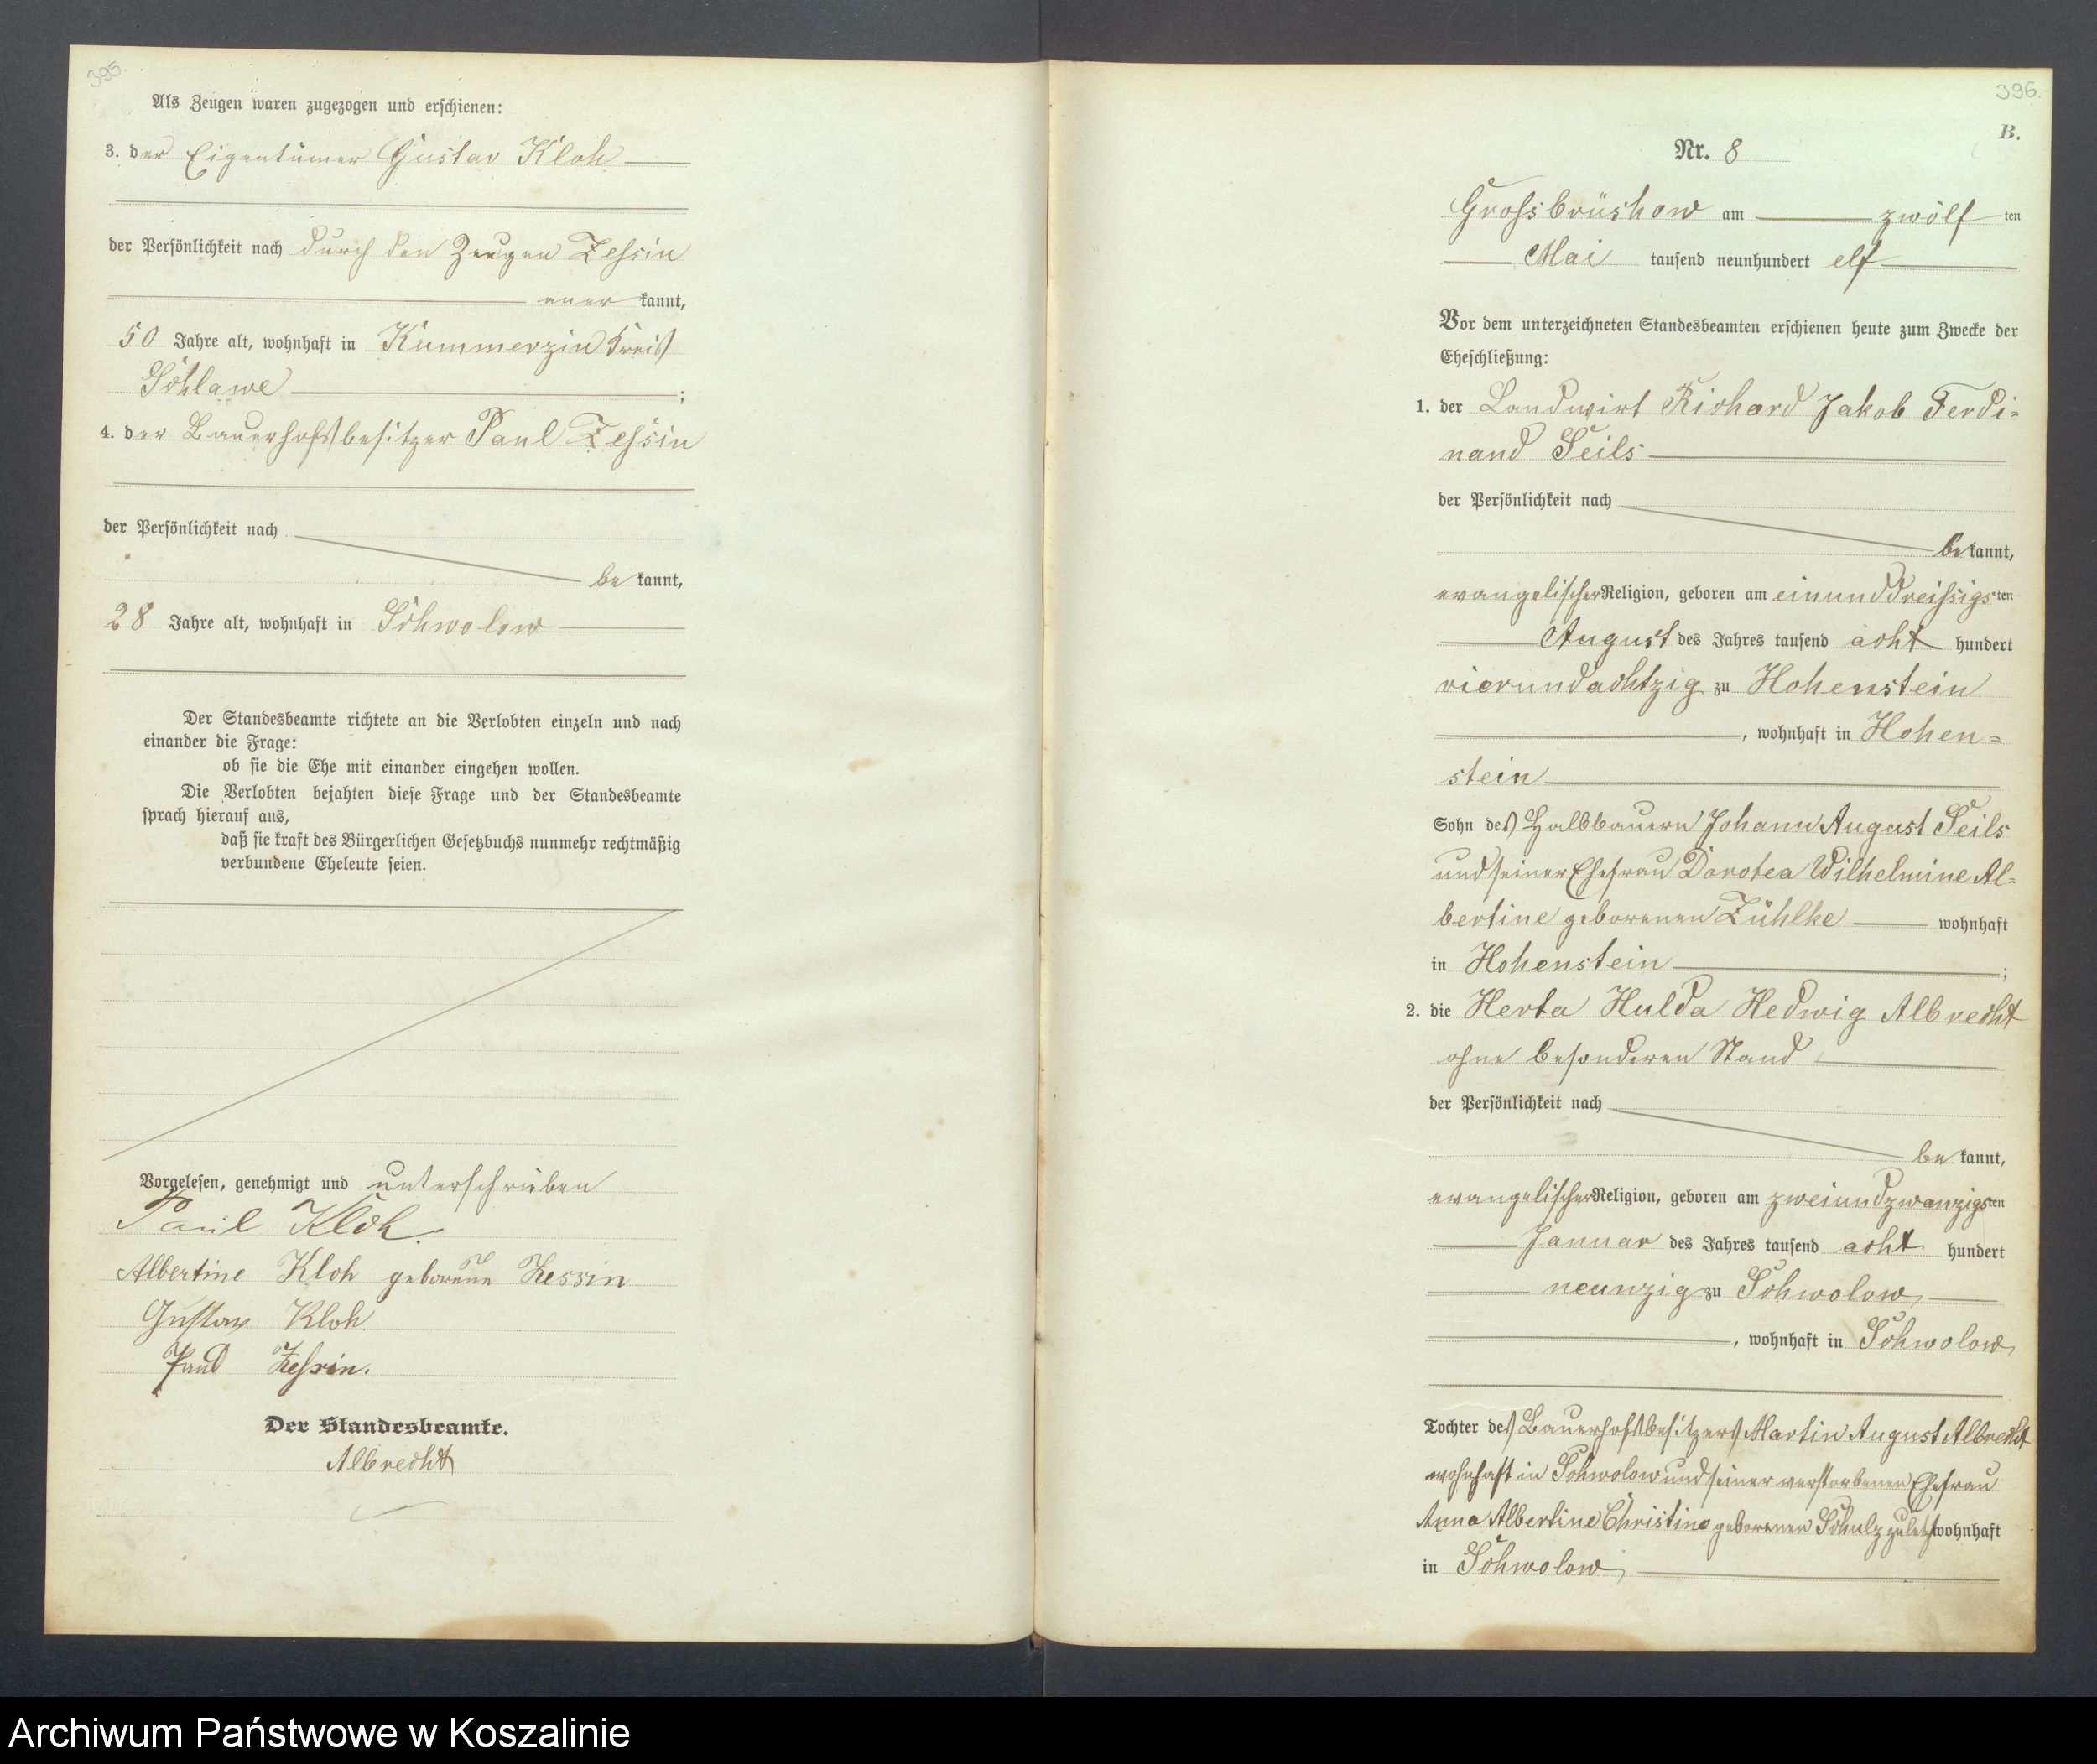 395.
Als Zeugen waren zugezogen und erschienen:
3. der Eigentümer Gustav Kloh
der Persönlichkeit nach durch den Zeugen Zessin
aner kannt,
50 Jahre alt, wohnhaft in Kummerzin Kreis
Schlawe ;
4. der Bauerhofsbesitzer Paul Zessin
der Persönlichkeit nach
be kannt,
28 Jahre alt, wohnhaft in Schwolow
Der Standesbeamte richtete an die Verlobten einzeln und nach
einander die Frage:
ob sie die Ehe mit einander eingehen wollen.
Die Verlobten bejahten diese Frage und der Standesbeamte
sprach hierauf aus,
daß sie kraft des Bürgerlichen Gesetzbuchs nunmehr rechtmäßig
verbundene Eheleute seien.
Vorgelesen, genehmigt und unterschrieben
Paul Kloh.
Albertine Kloh geborene Zessin
Gustav Kloh.
Paul Zessin.
Der Standesbeamte.
Albrecht
396.
B.
Nr. 8
Grossbrüskow am zwölf ten
Mai tausend neunhundert elf
Vor dem unterzeichneten Standesbeamten erschienen heute zum Zwecke der
Eheschließung:
1. der Landwirt Richard Jakob Ferdi=
nand Seils
der Persönlichkeit nach
be kannt,
evangelischer Religion, geboren am einunddreissigs ten
August des Jahres tausend acht hundert
vierundachtzig zu Hohenstein
, wohnhaft in Hohen=
stein
Sohn des Halbbauern Johann August Seils
und seiner Ehefrau Dorotea Wilhelmine Al=
bertine geborenen Zühlke wohnhaft
in Hohenstein ;
2. die Herta Hulda Hedwig Albrecht
ohne besonderen Stand
der Persönlichkeit nach
be kannt,
evangelischer Religion, geboren am zweiundzwanzigs ten
Januar des Jahres tausend acht hundert
neunzig zu Schwolow,
, wohnhaft in Schwolow,
Tochter des Bauerhofsbesitzers Martin August Albrecht
wohnhaft in Schwolow und seiner verstorbenen Ehefrau
Anna Albertine Christine geborenen Schulz zuletzt wohnhaft
in Schwolow,
Archiwum Państwowe w Koszalinie